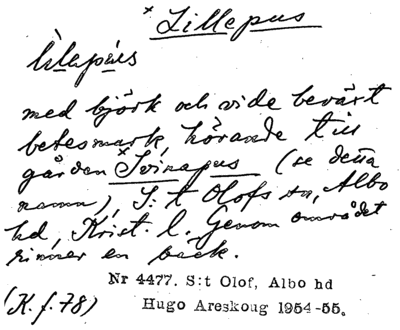 × Lillepus
lilepús
med björk och vide bevärt
betesmark, hörande till
gården ×Svinapus (se detta
namn), S:t Olofs sn, Albo
hd, Krist. l. Genom området
rinner en bäck.
Nr 4477. S:t Olof, Albo hd
(K. f. 78) Hugo Areskoug 1954-55.